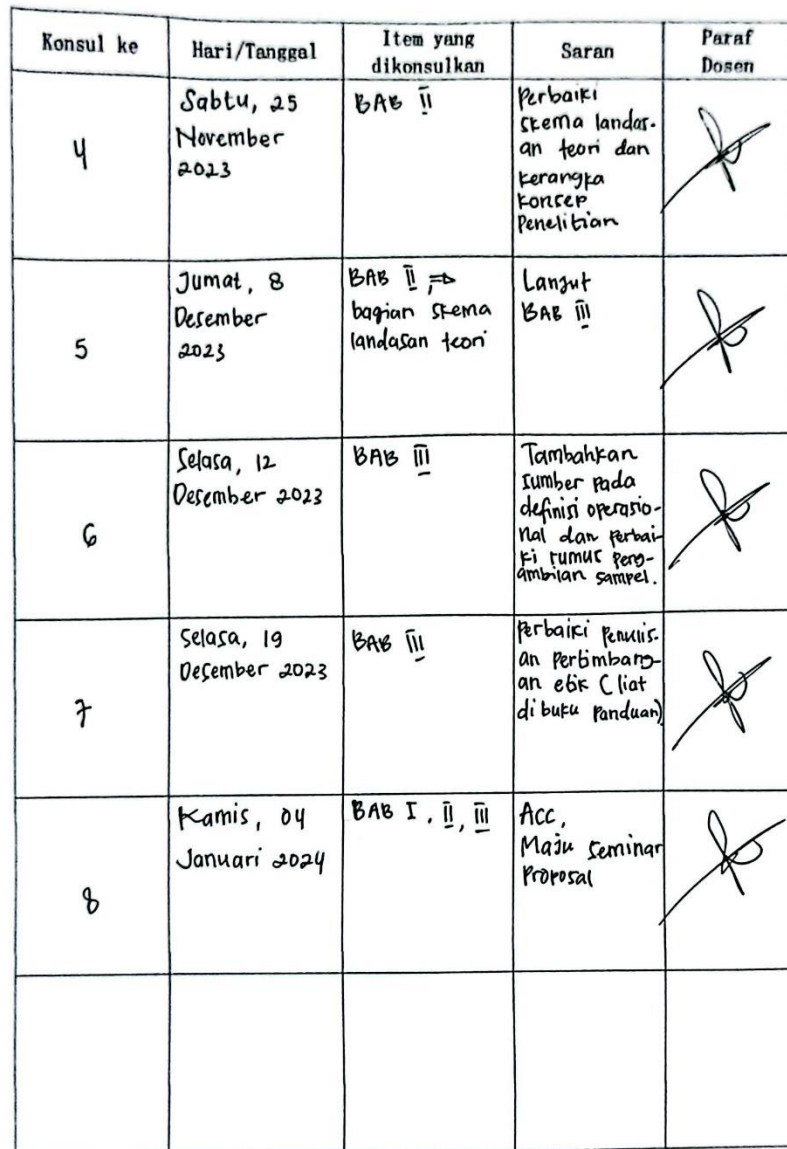 Konsul ke
Hari/Tanggal
Item yang
dikonsulkan
Saran
Paraf
Dosen
4
Sabtu, 25
November
2023
BAB II
Perbaiki
skema landas-
an teori dan
kerangka
konsep
Penelitian
5
Jumat, 8
Desember
2023
BAB II ⇒
bagian skema
landasan teori
Lanjut
BAB III
6
Selasa, 12
Desember 2023
BAB III
Tambahkan
sumber pada
definisi operasio-
nal dan perbai-
ki rumus peng-
ambilan sampel.
7
Selasa, 19
Desember 2023
BAB III
Perbaiki Penulis-
an pertimbang-
an etik (liat
di buku Panduan)
8
Kamis, 04
Januari 2024
BAB I, II, III
Acc,
Maju Seminar
Proposal